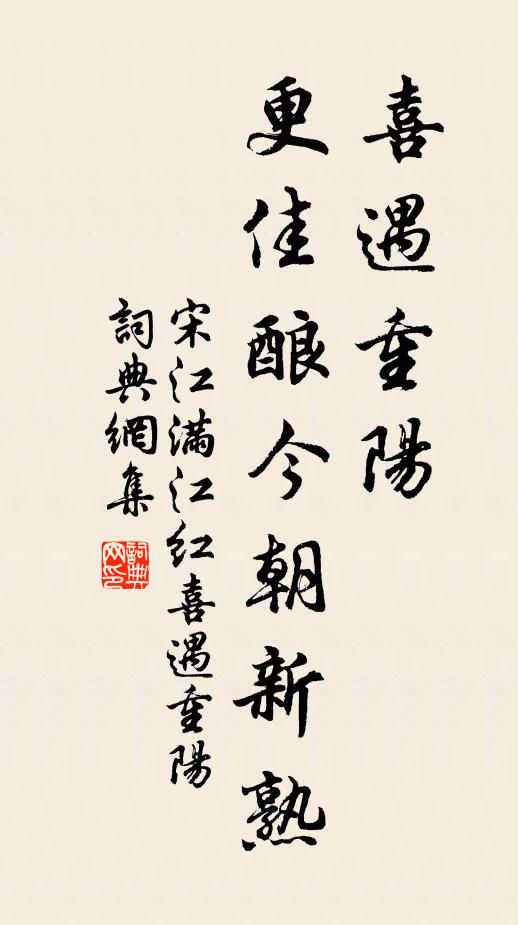 喜遇重陽
更佳酿今朝新熟
宋江满江红喜遇重陽
詞典網集
詞典
网印